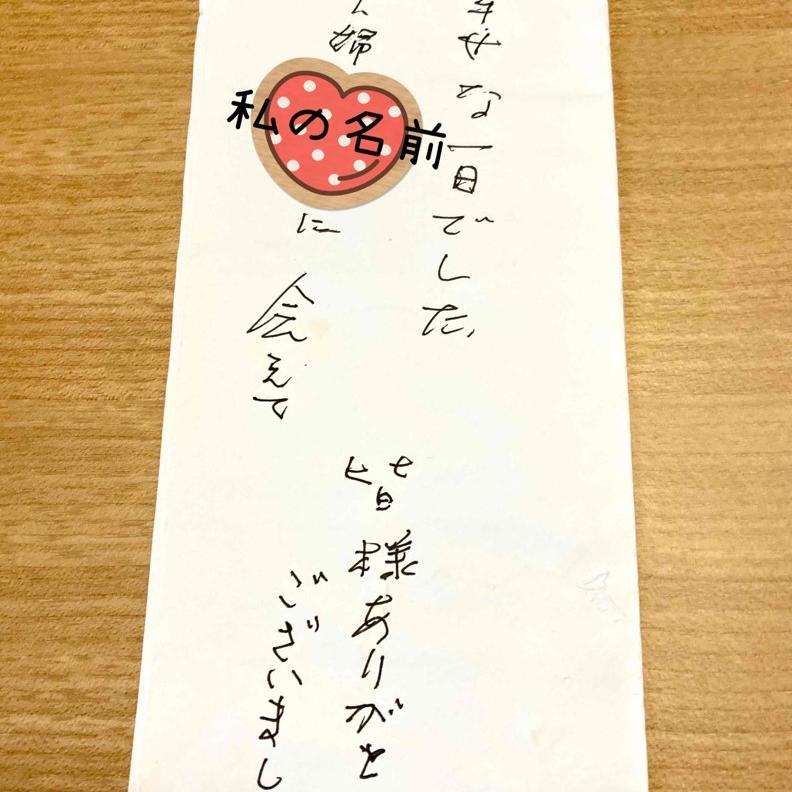 幸せな一日でした、
婦
私の名前
に会えて
皆様ありがと
ございまし